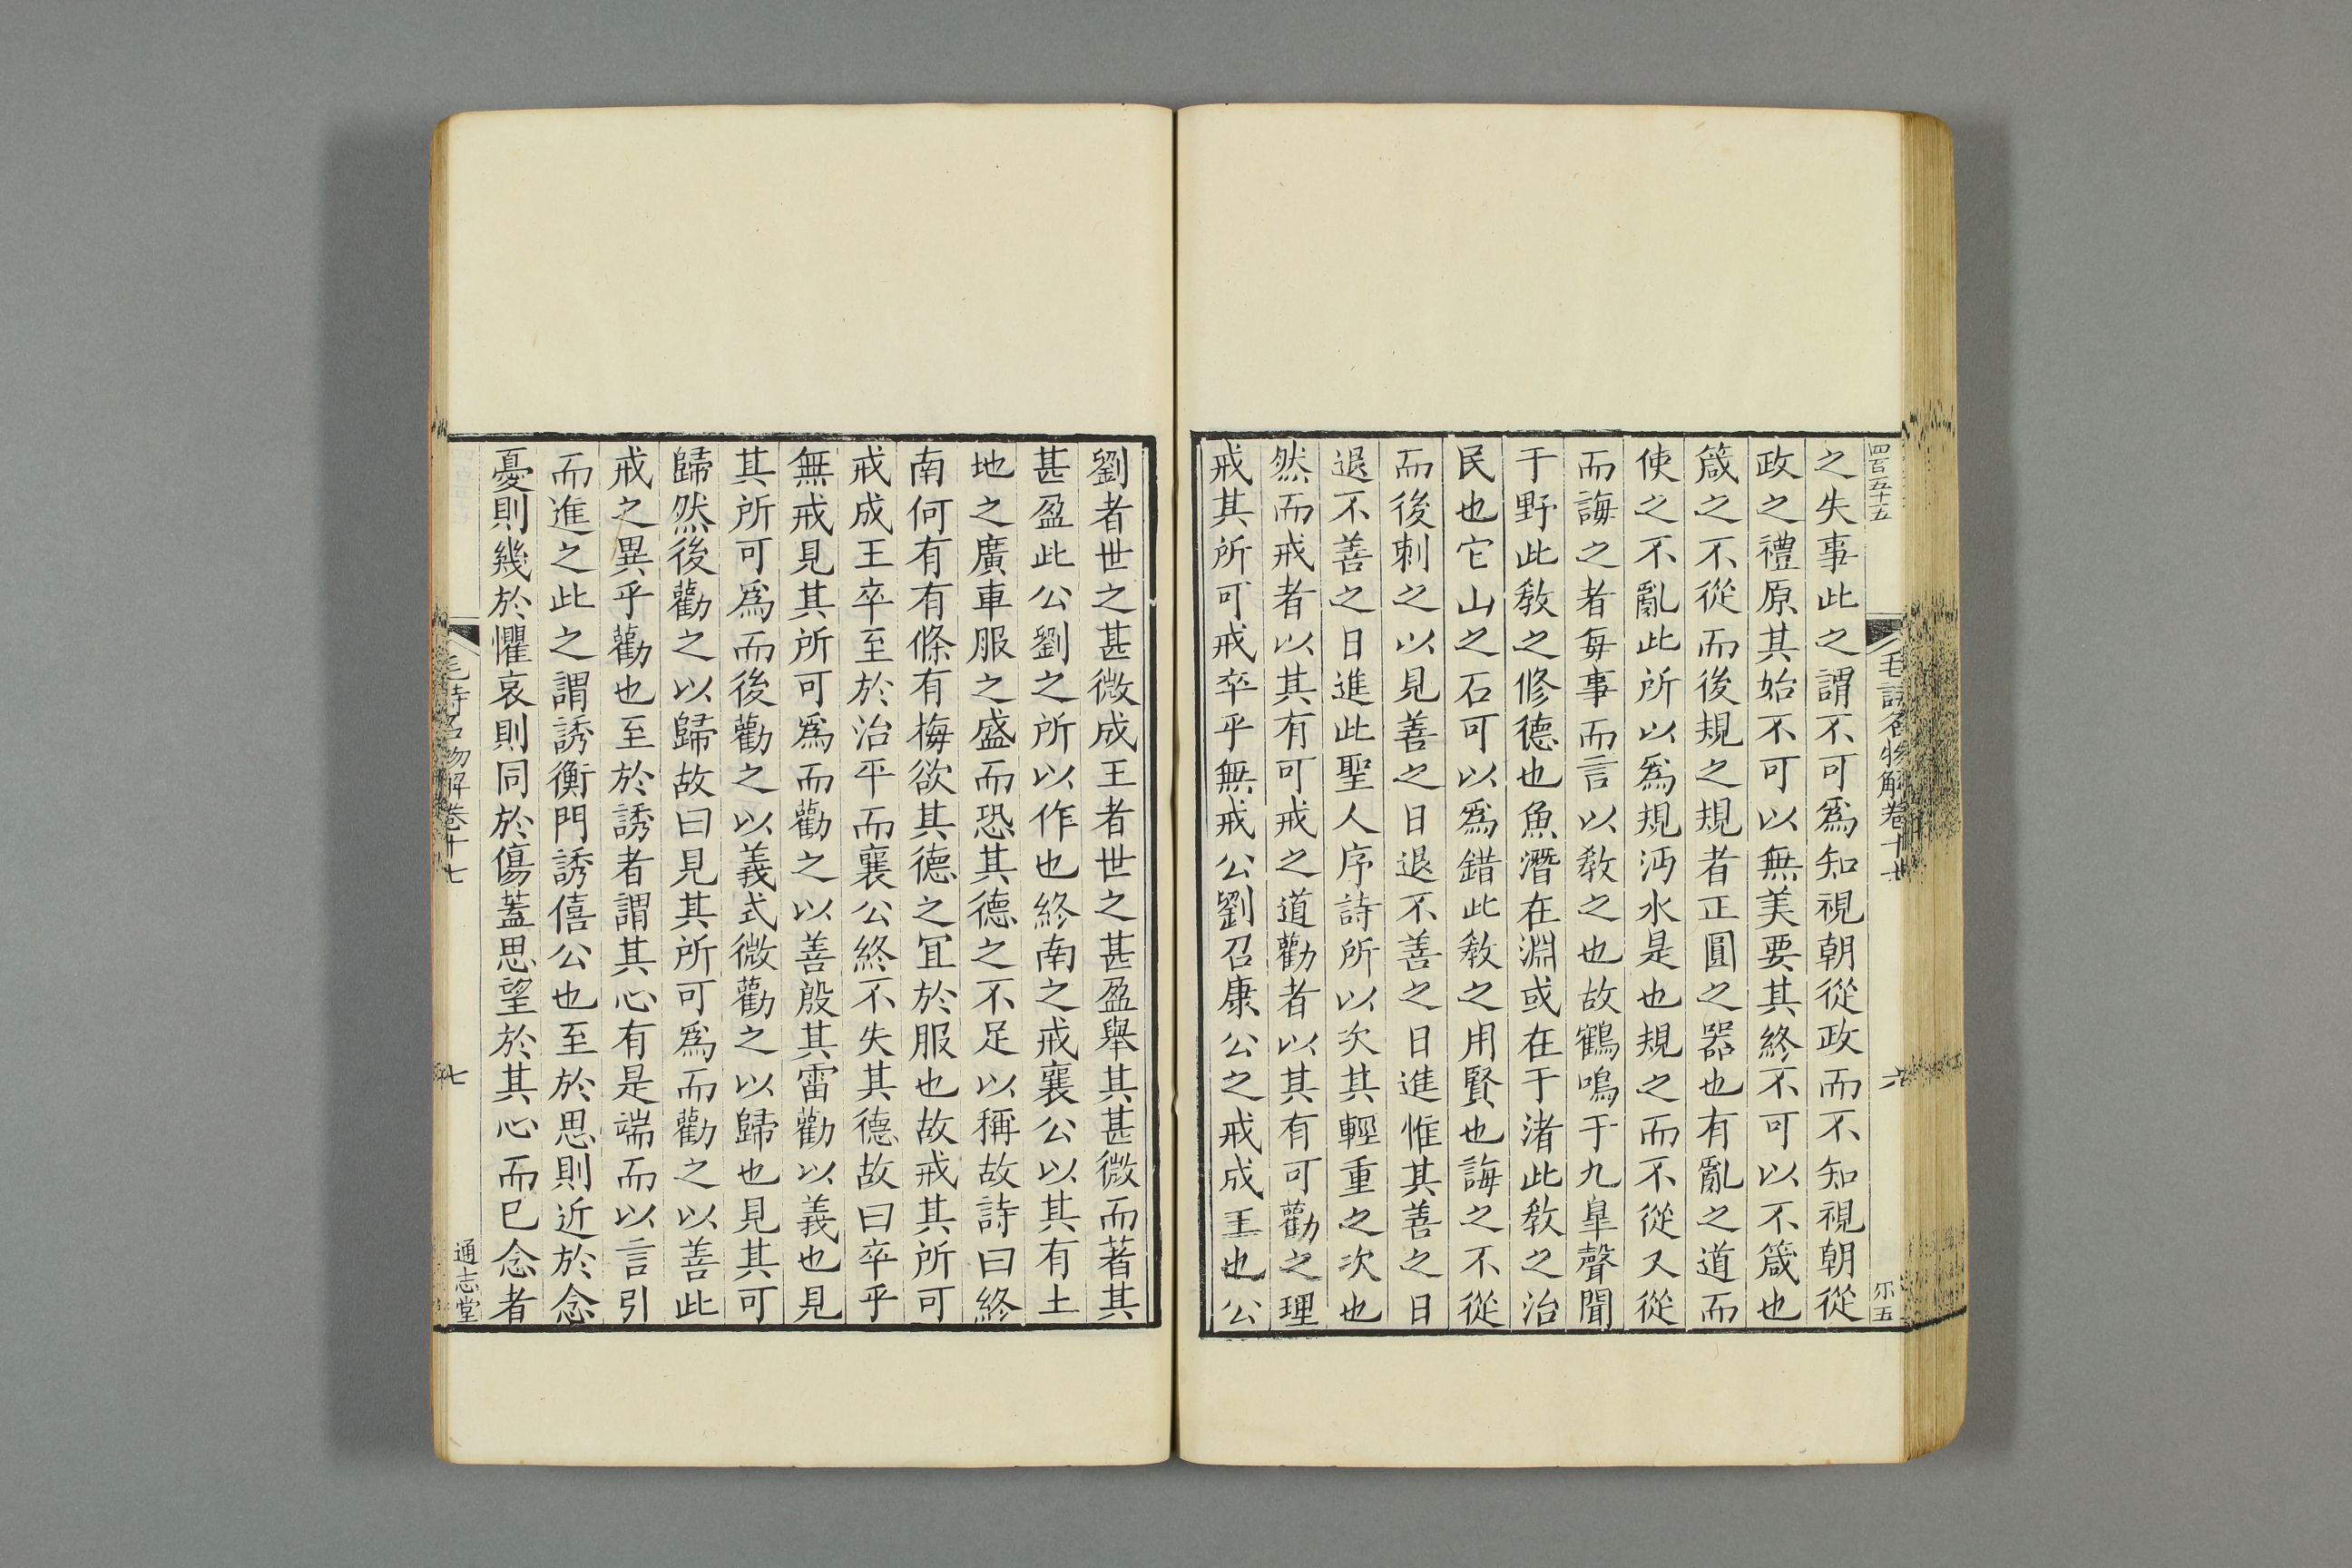 四百五十五
毛詩名物解卷十七
六
尔五
之失事此之謂不可爲知視朝從政而不知視朝從
政之禮原其始不可以無美要其終不可以不箴也
箴之不從而後規之規者正圓之器也有亂之道而
使之不亂此所以爲規沔水是也規之而不從又從
而誨之者每事而言以敎之也故鶴鳴于九臯聲聞
于野此敎之修德也魚潛在淵或在于渚此敎之治
民也它山之石可以爲錯此敎之用賢也誨之不從
而後刺之以見善之日退不善之日進惟其善之日
退不善之日進此聖人序詩所以次其輕重之次也
然而戒者以其有可戒之道勸者以其有可勸之理
戒其所可戒卒乎無戒公劉召康公之戒成王也公
劉者世之甚微成王者世之甚盈舉其甚微而著其
甚盈此公劉之所以作也終南之戒襄公以其有土
地之廣車服之盛而恐其德之不足以稱故詩曰終
南何有有條有梅欲其德之冝於服也故戒其所可
戒成王卒至於治平而襄公終不失其德故曰卒乎
無戒見其所可爲而勸之以善殷其雷勸以義也見
其所可爲而後勸之以義式微勸之以歸也見其可
歸然後勸之以歸故曰見其所可爲而勸之以善此
戒之異乎勸也至於誘者謂其心有是端而以言引
而進之此之謂誘衡門誘僖公也至於思則近於念
憂則幾於懼哀則同於傷蓋思望於其心而已念者
毛詩名物解卷十七
七
通志堂